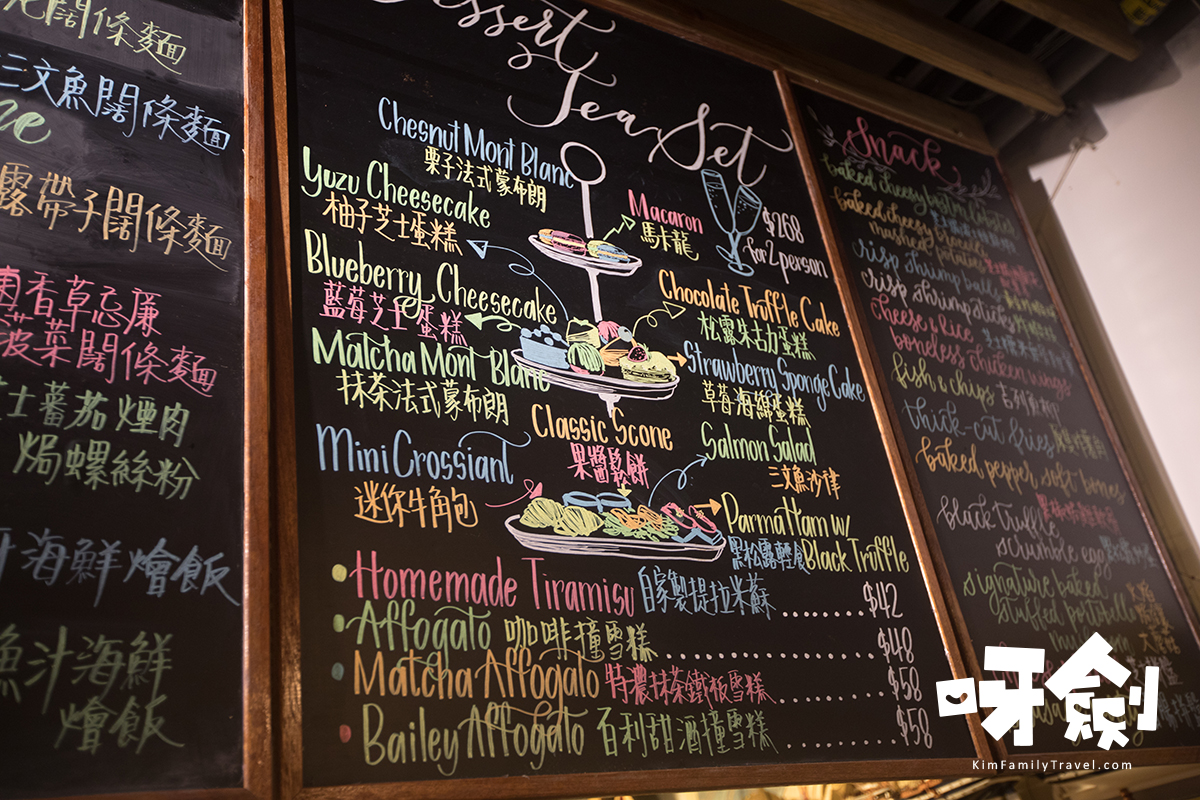 闊條麵
三文魚闊條麵
帶子闊條麵
香草忌廉
菠菜闊條麵
芝士蕃茄煙肉
焗螺絲粉
海鮮燴飯
魚汁海鮮
燴飯
Dessert
Tea Set
Chesnut Mont Blanc
栗子法式蒙布朗
Yuzu Cheesecake
柚子芝士蛋糕
Macaron
馬卡龍
$268
for 2 person
Blueberry Cheesecake
藍莓芝士蛋糕
Chocolate Truffle Cake
松露朱古力蛋糕
Matcha Mont Blanc
抹茶法式蒙布朗
Strawberry Sponge Cake
草莓海綿蛋糕
Classic Scone
果醬鬆餅
Salmon Salad
三文魚沙律
Mini Crossiant
迷你牛角包
Parma Ham w/
黑松露輕食 Black Truffle
Homemade Tiramisu 自家製提拉米蘇 ....... $42
Affogato 咖啡撞雪糕 ................. $48
Matcha Affogato 特濃抹茶鐵板雪糕 .......... $58
Bailey Affogato 百利甜酒撞雪糕 .......... $58
Snack
baked cheesy
baked cheesy
mashed potatoes
crisp shrimp balls
crisp shrimp sticks
cheese & rice
boneless chicken wings
fish & chips
thick-cut fries
baked pepper soft bones
black truffle
scrumble egg
signature baked
stuffed portobello
mushroom
呀劍
KimFamilyTravel.com